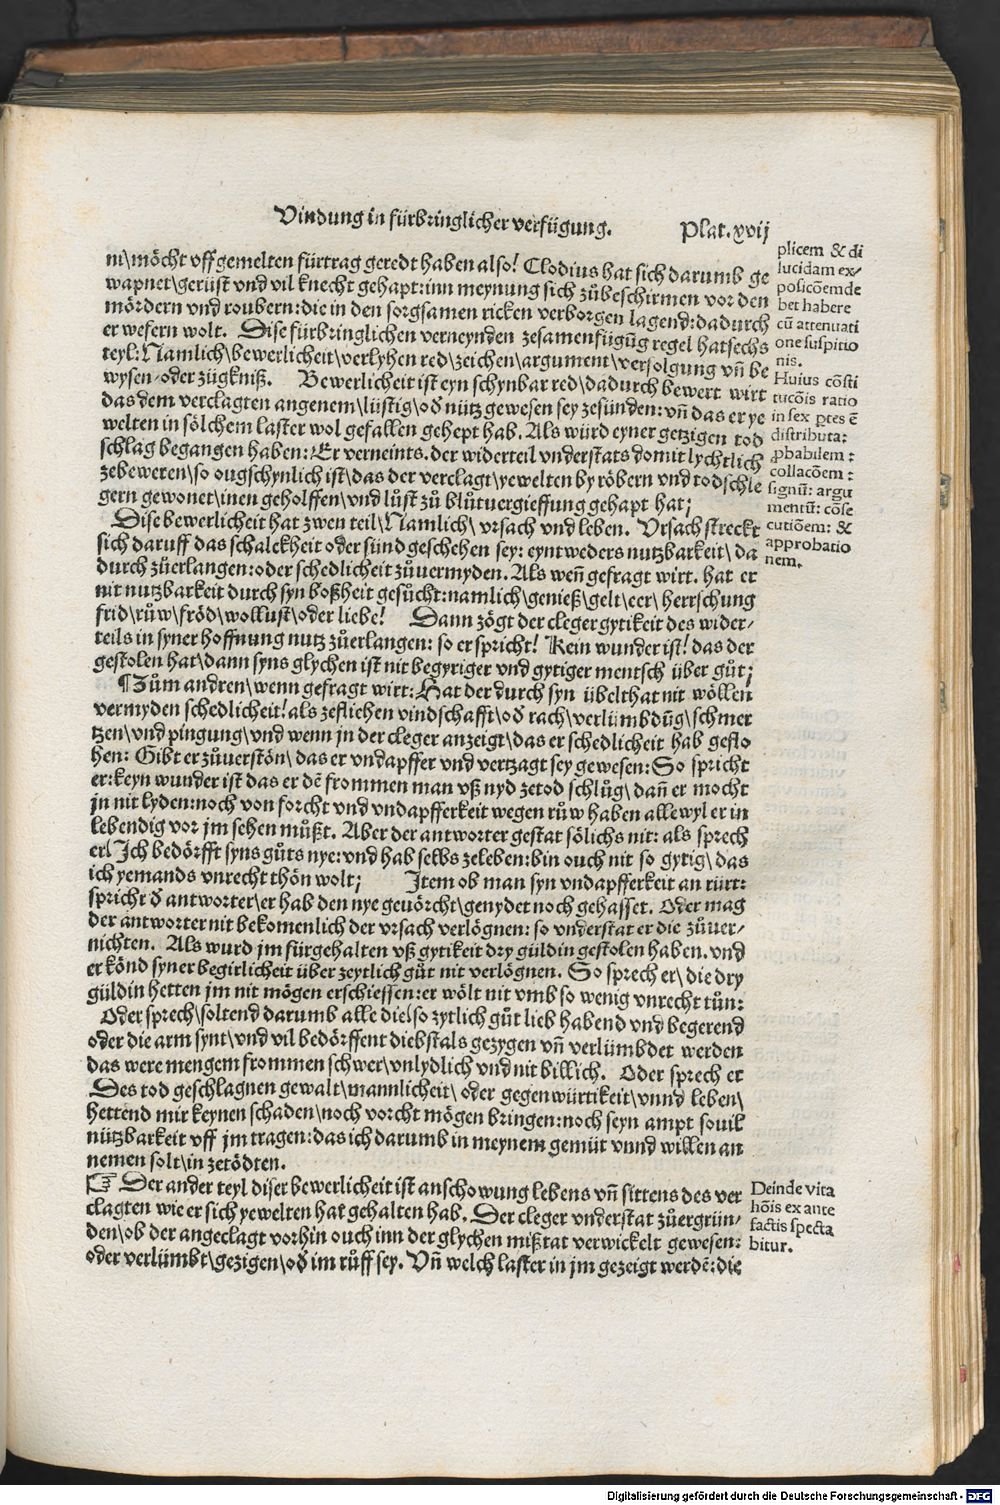 Vindung in fürbringlicher verfügung.
Plat. xvij
ni\möcht vff gemelten fürtrag geredt haben also! Clodius hat sich darumb ge
wapnet\gerüst vnd vil knecht gehapt: inn meynung sich zůbeschirmen vor den
mördern vnd roubern: die in den sorgsamen ricken verborgen lagend: dadurch
er wefern wolt. Dise fürbringlichen verneynden zesamenfügūg regel hat sechs
teyl: Namlich\bewerlicheit\verlyhen red\zeichen\argument\versolgung vn̄ be
wysen-oder zügkniß. Bewerlicheit ist eyn schynbar red\dadurch bewert wirt
das dem verclagten angenem\lüstig\oď nütz gewesen sey zesünden: vn̄ das er ye
welten in sölchem laster wol gefallen gehept hab. Als würd eyner getzigen tod
schlag begangen haben: Er verneints. der widerteil vnderstats domit lychtlich
zebeweren\so ougschynlich ist\das der verclagt\yewelten by röbern vnd todschle
gern gewonet\inen geholffen\vnd lüst zů blůtuergieffung gehapt hat;
Dise bewerlicheit hat zwen teil\Namlich\ vrsach vnd leben. Vrsach streckt
sich daruff das schalckheit oder sünd geschehen sey: eyntweders nutzbarkeit\ da
durch zůerlangen: oder schedlicheit zůuermyden. Als wen̄ gefragt wirt. hat er
nit nutzbarkeit durch syn boßheit gesůcht: namlich\genieß\gelt\eer\ herrschung
frid\růw\fröd\wollust\oder liebe! Dann zögt der cleger gytikeit des wider-
teils in syner hoffnung nutz zůerlangen: so er spricht! Kein wunder ist! das der
gestolen hat\dann syns glychen ist nit begyriger vnd gytiger mentsch über gůt;
¶Zům andren\wenn gefragt wirt: Hat der durch syn übelthat nit wöllen
vermyden schedlicheit! als zefliehen vindschafft\oď rach\verlümbdūg\schmer
tzen\vnd pingung\vnd wenn jn der cleger anzeigt\das er schedlicheit hab geflo
hen: Gibt er zůuerstön\das er vndapffer vnd vertzagt sey gewesen: So spricht
er: keyn wunder ist das er dē frommen man vß nyd zetod schlůg\ dan̄ er mocht
jn nit lyden: noch von forcht vnd vndapfferkeit wegen růw haben alle wyl er in
lebendig vor jm sehen můßt. Aber der antworter gestat sölichs nit: als sprech
er\ Ich bedörfft syns gůts nye: vnd hab selbs zeleben: bin ouch nit so gytig\ das
ich yemands vnrecht thön wolt; Item ob man syn vndapfferkeit an rürt:
spricht ď antworter\er hab den nye gevörcht\genydet noch gehasset. Oder mag
der antworter nit bekomenlich der vrsach verlögnen: so vnderstat er die zůuer-
nichten. Als wurd jm fürgehalten vß gytikeit dry güldin gestolen haben. vnd
er könd syner begirlicheit über zeytlich gůt nit verlögnen. So sprech er\ die dry
güldin hetten jm nit mögen erschiessen: er wölt nit vmb so wenig vnrecht tůn:
Oder sprech\soltend darumb alle die\so zytlich gůt lieb habend vnd begerend
oder die arm synt\vnd vil bedörffent diebstals gezygen vn̄ verlümbdet werden
das were mengem frommen schwer\vnlydlich vnd nit billich. Oder sprech er
Des tod geschlagnen gewalt\mannlicheit\ oder gegenwürtikeit\vnnd leben\
hettend mir keynen schaden\noch vorcht mögen bringen: noch seyn ampt souil
nützbarkeit vff jm tragen: das ich darumb in meynem gemüt vnnd willen an
nemen solt\in zetödten.
☞ Der ander teyl diser bewerlicheit ist anschowung lebens vn̄ sittens des ver
clagten wie er sich yewelten hat gehalten hab. Der cleger vnderstat zůergrün-
den\ob der angeclagt vorhin ouch inn der glychen mißtat verwickelt gewesen:
oder verlümbt\gezigen\oď im růff sey. Vn̄ welch laster in jm gezeigt werdē: die
plicem & di
lucidam ex-
posicōem de
bet habere
cū attenuati
one suspitio
nis.
Huius cōsti
tucōis ratio
in sex ꝑtes ē
distributa:
ꝓbabilem:
collacōem:
signū: argu
mentū: cōse
cutiōem: &
approbatio
nem.
Deinde vita
hōis ex ante
factis specta
bitur.
Digitalisierung gefördert durch die Deutsche Forschungsgemeinschaft - DFG